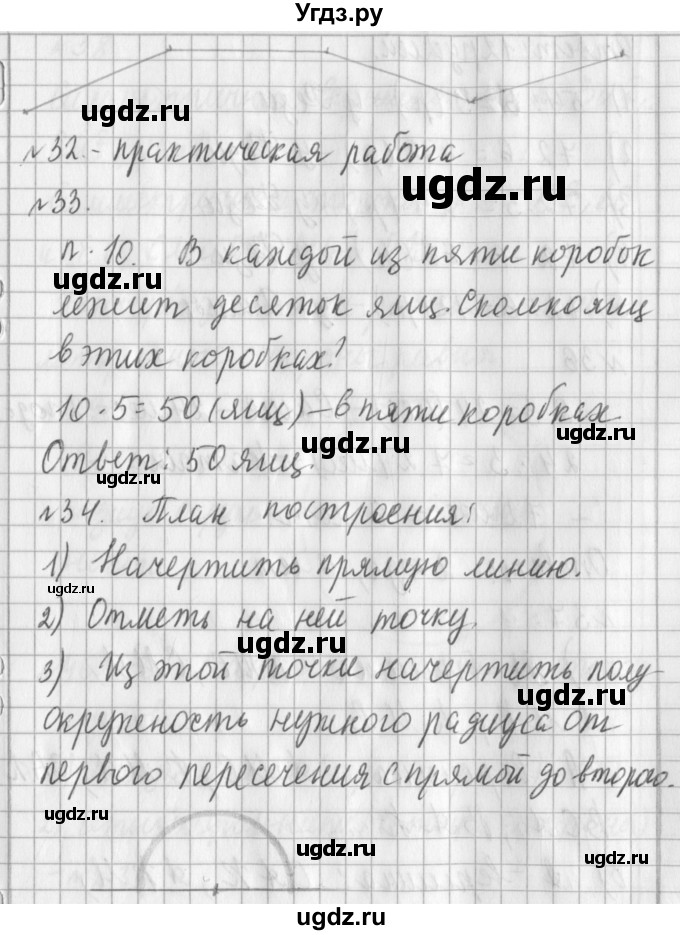 Угдз.ру
ugdz.ru
№32. - практическая работа
ugdz.ru
№33.
п. 10. В каждой из пяти коробок
ugdz.ru
лежит десяток яиц. Сколько яиц
в этих коробках?
10 · 5 = 50 (яиц) – в пяти коробках
ugdz.ru ugdz.ru
Ответ: 50 яиц.
ugdz.ru
№34. План построения:
1) Начертить прямую линию.
ugdz.ru
2) Отметь на ней точку.
ugdz.ru
3) Из этой точки начертить полу-
ugdz.ru
окруженость нужного радиуса от
первого пересечения с прямой до второго.
ugdz.ru
ugdz.ru ugdz.ru
ugdz.ru